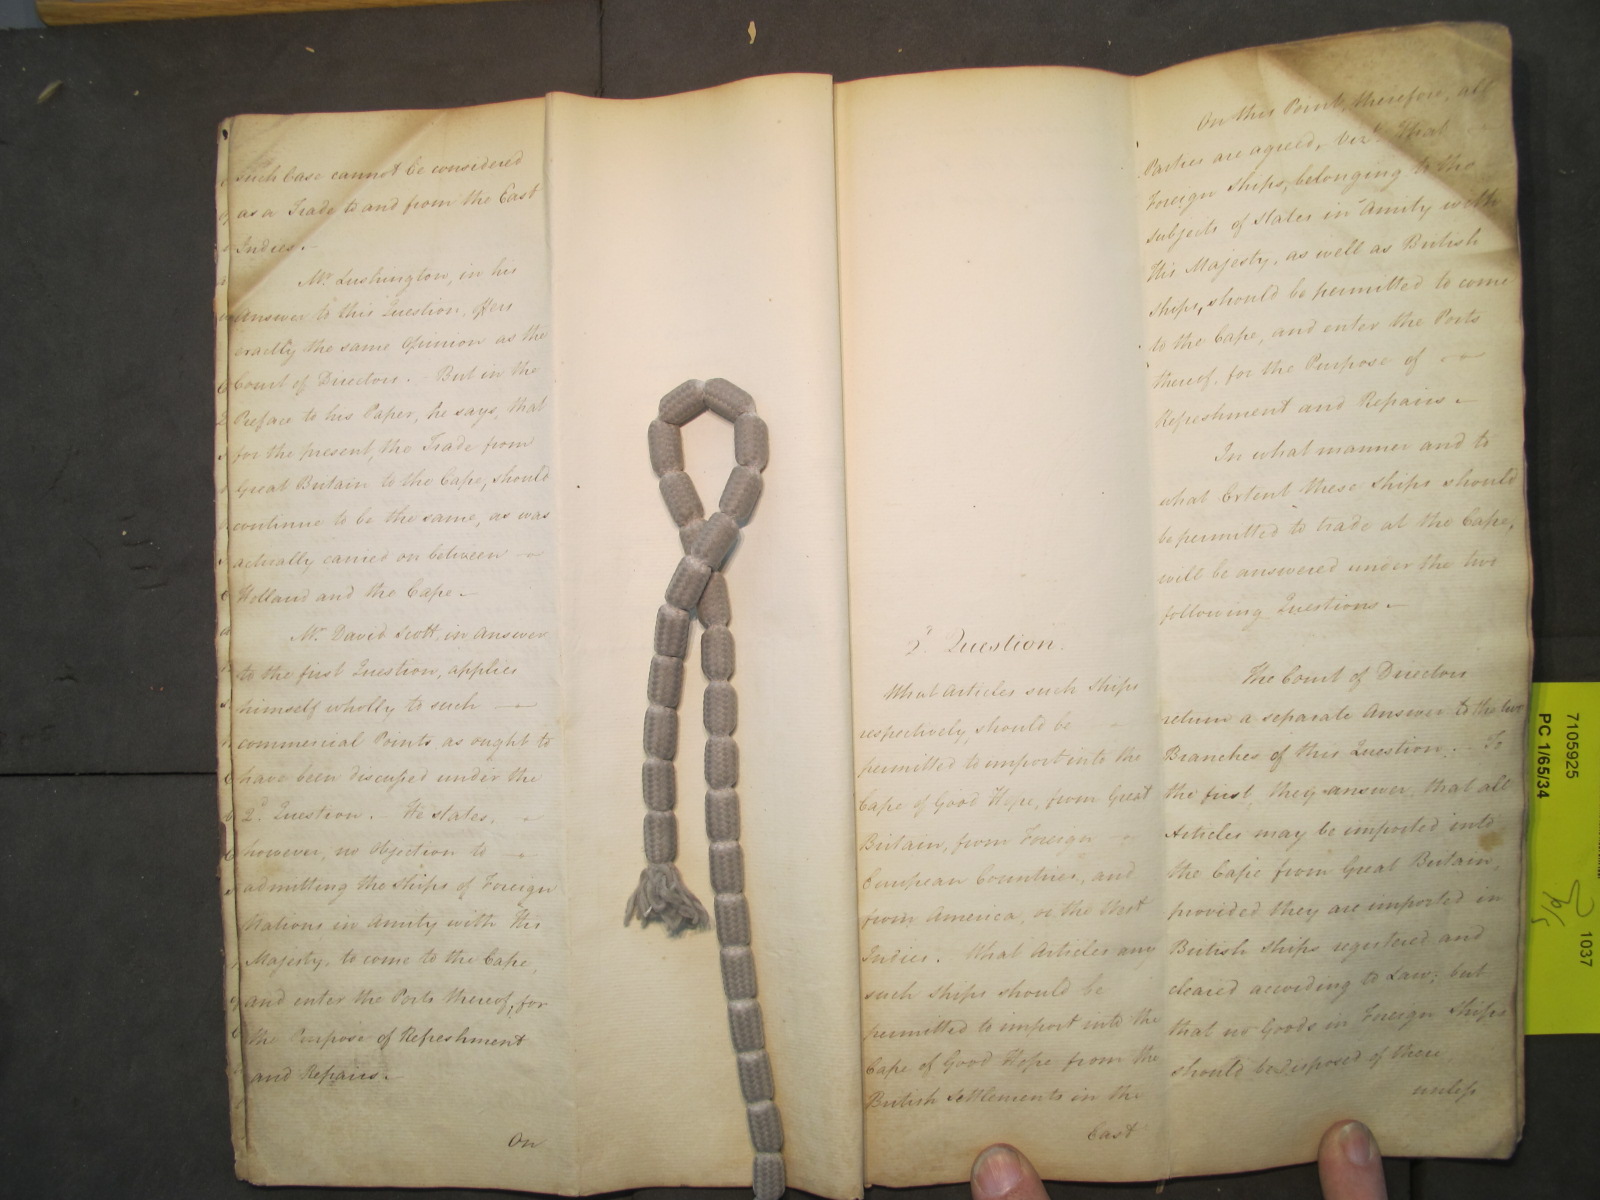 such Case cannot be considered
as a Trade to and from the East
Indies. –
Mr. Lushington, in his
Answer to this Question, offers
exactly the same Opinion as the
Court of Directors. – But in the
Preface to his Paper, he says, that
for the present, the Trade from
Great Britain to the Cape, should
continue to be the same, as was
actually carried on between —
Holland and the Cape. –
Mr. David Scott, in Answer
to the first Question, applies
himself wholly to such —
commercial Points, as ought to
have been discussed under the
2d. Question. – He states, —
however, no Objection to —
admitting the Ships of Foreign
Nations in Amity with His
Majesty, to come to the Cape,
and enter the Ports thereof, for
the Purpose of Refreshment
and Repairs. –
On
2d. Question.
What Articles such Ships
respectively, should be —
permitted to import into the
Cape of Good Hope, from Great
Britain, from Foreign —
European Countries, and
from America, or the West
Indies. What Articles any
such Ships should be
permitted to import into the
Cape of Good Hope from the
British Settlements in the
East
On this Point, therefore, all
Parties are agreed, vizt. That
Foreign Ships, belonging to the
subjects of States in Amity with
His Majesty, as well as British
Ships, should be permitted to come
to the Cape, and enter the Ports
thereof, for the Purpose of —
Refreshment and Repairs. –
In what manner and to
what Extent these Ships should
be permitted to trade at the Cape,
will be answered under the two
following Questions. –
The Court of Directors
return a separate Answer to the two
Branches of this Question. – To
the first, they answer, that all
Articles may be imported into
the Cape from Great Britain,
provided they are imported in
British Ships registered and
cleared according to Law; but
that no Goods in Foreign Ships
should be disposed of there,
unless
7105925
PC 1/65/34
1037